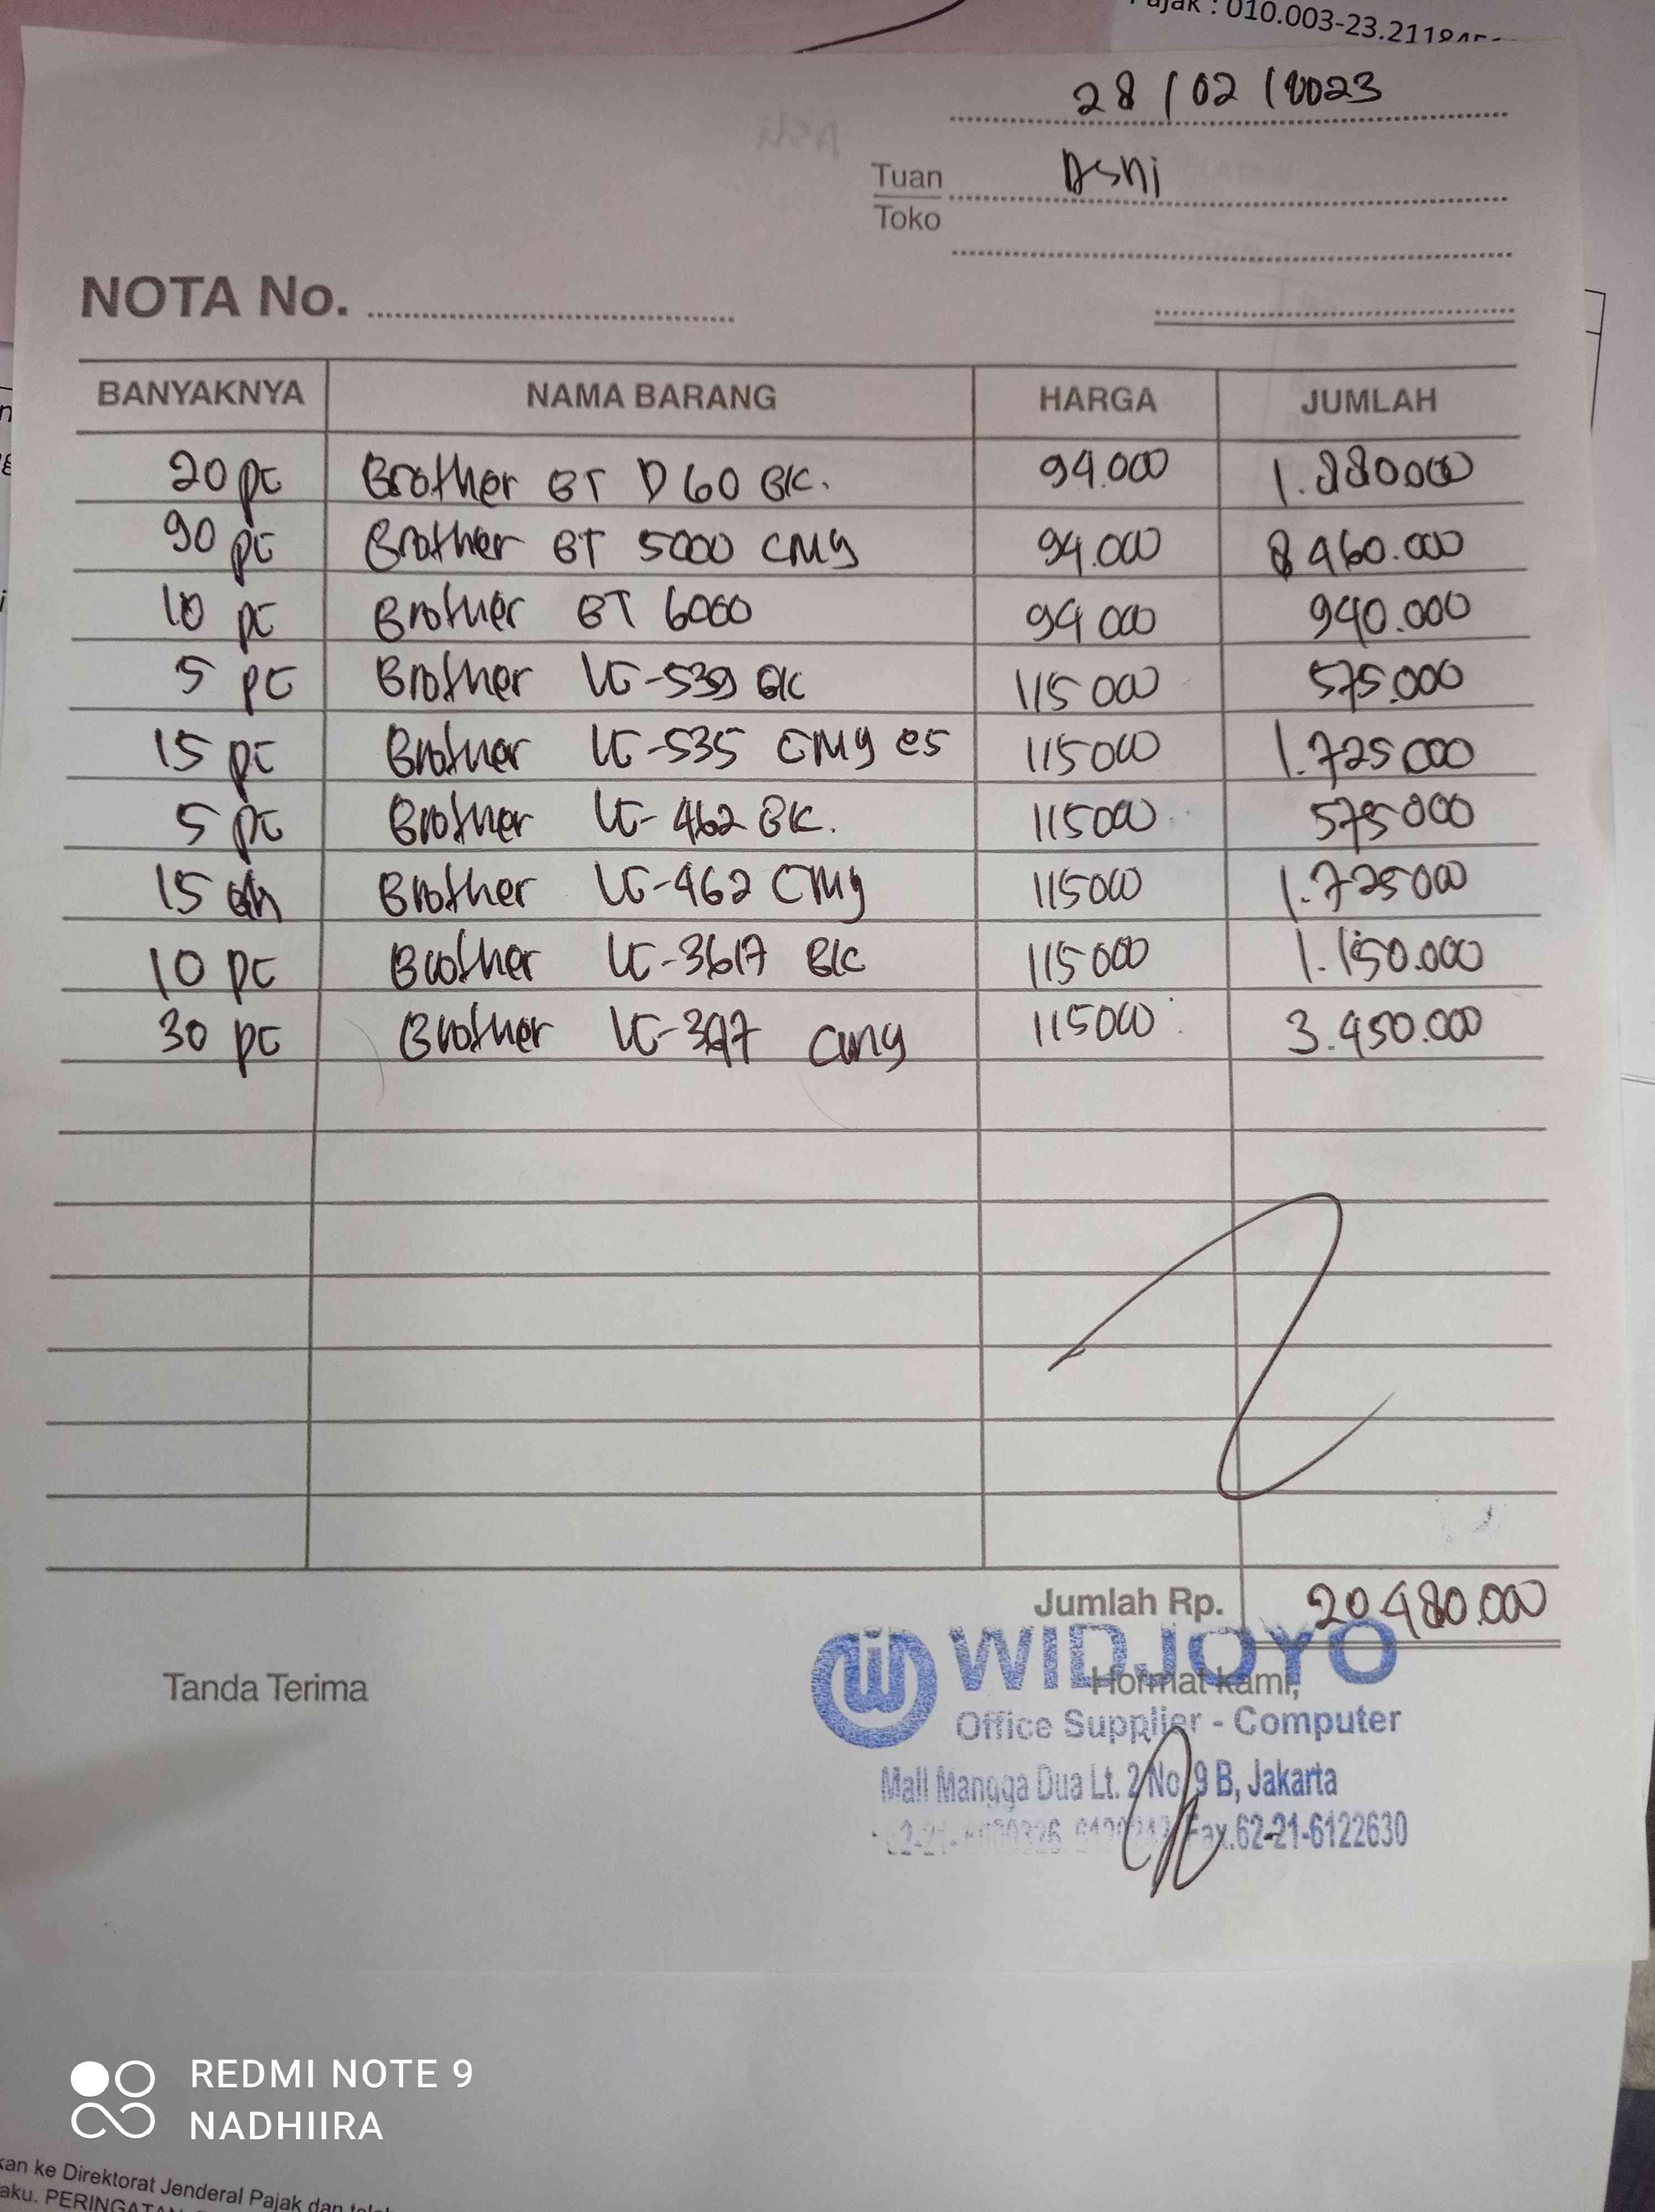 Pajak : 010.003-23.211845
28 / 02 / 2023
Tuan Asni
Toko
NOTA No.
BANYAKNYA NAMA BARANG HARGA JUMLAH
20 pc Brother BT D 60 BK. 94.000 1.880.000
90 pc Brother BT 5000 CMY 94.000 8 460.000
10 pc Brother BT 6000 94 000 940.000
5 pc Brother LC-539 BK 115 000 575.000
15 pc Brother LC-535 CMY e5 115000 1.725 000
5 pc Brother LC-462 BK. 115000 575 000
15 Brother LC-462 CMY 115000 1.725 000
10 pc Brother LC-3617 BK 115 000 1.150.000
30 pc Brother CMY 115000 3.450.000
Jumlah Rp. 20.480.000
WIDJOYO
Tanda Terima Hormat kami,
Office Supplier - Computer
Mall Mangga Dua Lt. 2 No. 9 B, Jakarta
Fax.62-21-6122630
REDMI NOTE 9
NADHIIRA
kan ke Direktorat Jenderal Pajak dan
aku. PERINGATAN